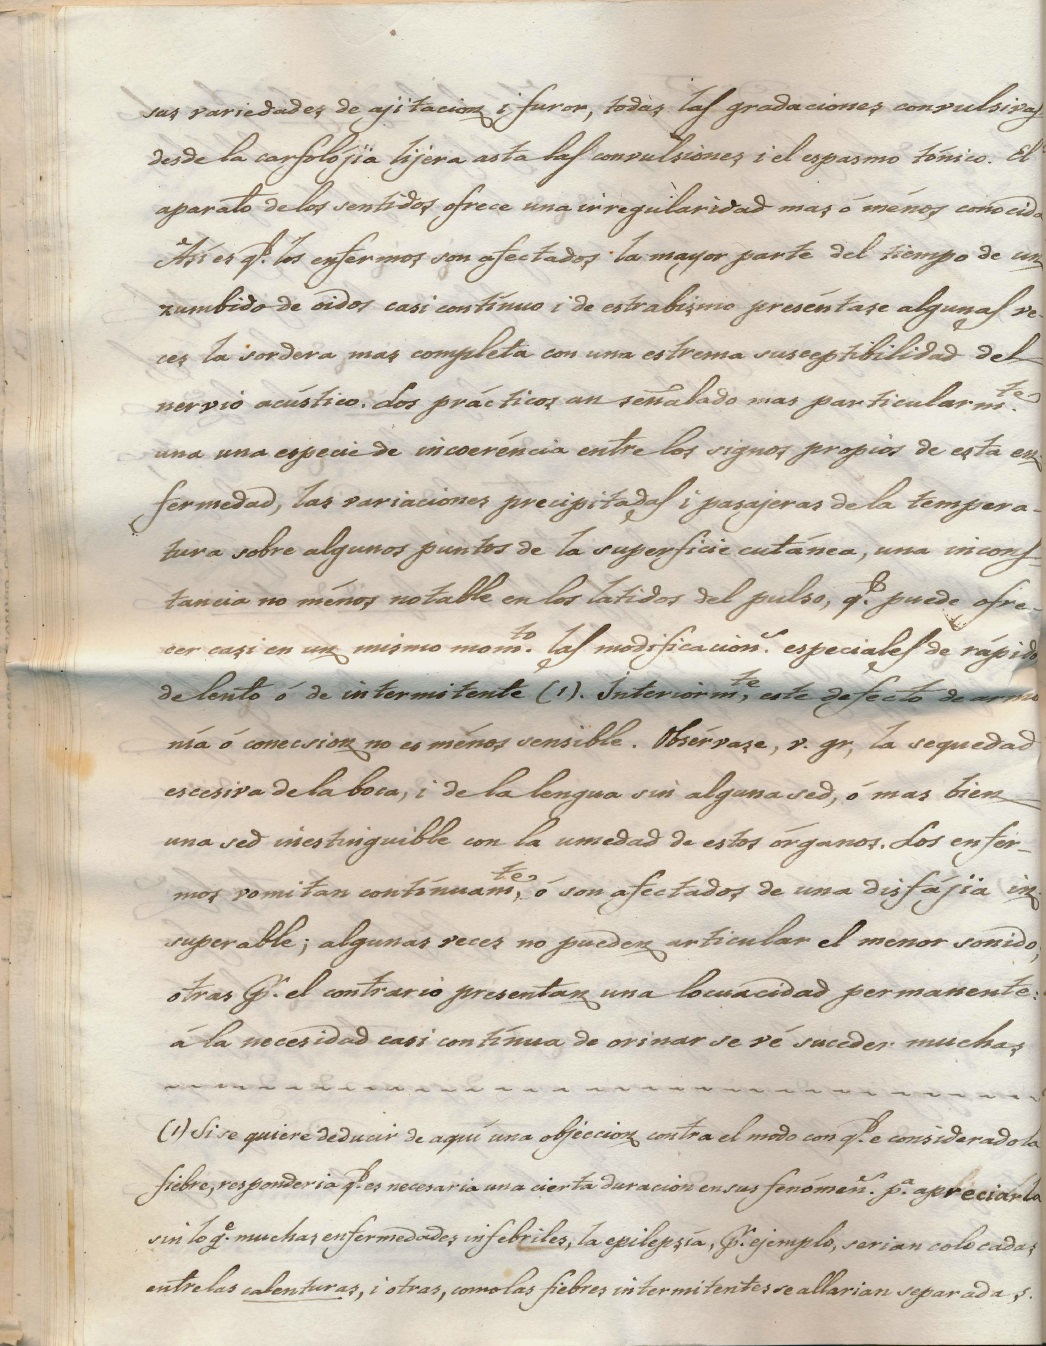 sus variedades de ajitacion i furor, todas las gradaciones convulsivas
desde la carfolójia lijera asta las convulsiones i el espasmo tónico. El
aparato de los sentidos ofrece una irregularidad mas ó ménos conocida
Asi es qe. los enfermos son afectados la mayor parte del tiempo de un
zumbido de oidos casi contínuo i de estrabismo preséntase algunas ve-
ces la sordera mas completa con una estrema susceptibilidad del
nervio acústico. Los prácticos an señalado mas particularmte.
una una especie de incoeréncia entre los signos propios de esta en-
fermedad, las variaciones precipitadas i pasajeras de la tempera-
tura sobre algunos puntos de la superficie cutánea, una incons-
tancia no ménos notable en los latidos del pulso, qe. puede ofre-
cer casi en un mismo momto. las modificacions. especiales de rápido
de lento ó de intermitente (1). Interiormte, este defecto de armo
nía ó conecsion no es ménos sensible. Obsérvase, v. gr, la sequedad
escesiva de la boca, i de la lengua sin alguna sed, ó mas bien
una sed inestinguible con la umedad de estos órganos. Los enfer-
mos vomitan contínuamte, ó son afectados de una disfájia in-
superable; algunas veces no pueden articular el menor sonido,
otras pr. el contrario presentan una locuacidad permanente:
á la necesidad casi contínua de orinar se vé suceder muchas
(1) Si se quiere deducir de aquí una objeccion contra el modo con qe. e considerado la
fiebre, responderia qe. es necesaria una cierta duracion en sus fenómens. pa. apreciarla
sin lo qe. muchas enfermedades infebriles, la epilepsía, pr. ejemplo, serian colocadas
entre las calenturas, i otras, como las fiebres intermitentes se allarian separadas.